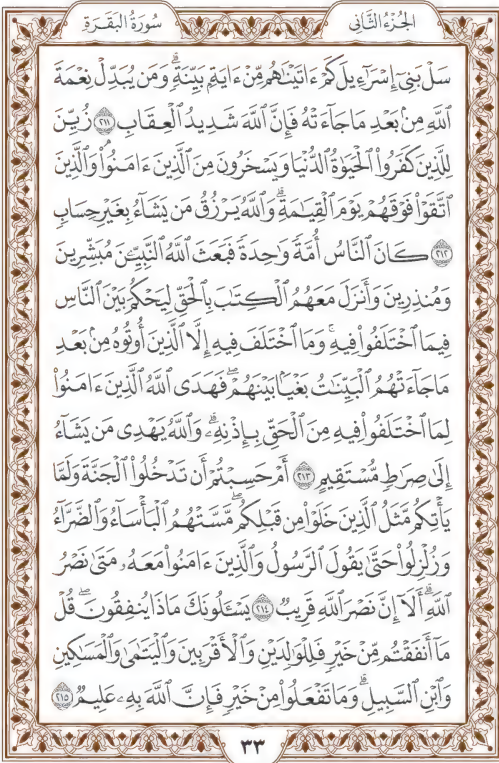 الجُزْءُ الثَّانِى
سُورَةُ البَقَرَةِ
سَلْ بَنِىٓ إِسْرَٰٓءِيلَ كَمْ ءَاتَيْنَٰهُم مِّنْ ءَايَةٍۭ بَيِّنَةٍۗ وَمَن يُبَدِّلْ نِعْمَةَ
ٱللَّهِ مِنۢ بَعْدِ مَا جَآءَتْهُ فَإِنَّ ٱللَّهَ شَدِيدُ ٱلْعِقَابِ ٢١١ زُيِّنَ
لِلَّذِينَ كَفَرُوا۟ ٱلْحَيَوٰةُ ٱلدُّنْيَا وَيَسْخَرُونَ مِنَ ٱلَّذِينَ ءَامَنُوا۟ۘ وَٱلَّذِينَ
ٱتَّقَوْا۟ فَوْقَهُمْ يَوْمَ ٱلْقِيَٰمَةِۗ وَٱللَّهُ يَرْزُقُ مَن يَشَآءُ بِغَيْرِ حِسَابٍ
٢١٢ كَانَ ٱلنَّاسُ أُمَّةً وَٰحِدَةً فَبَعَثَ ٱللَّهُ ٱلنَّبِيِّـۧنَ مُبَشِّرِينَ
وَمُنذِرِينَ وَأَنزَلَ مَعَهُمُ ٱلْكِتَٰبَ بِٱلْحَقِّ لِيَحْكُمَ بَيْنَ ٱلنَّاسِ
فِيمَا ٱخْتَلَفُوا۟ فِيهِۚ وَمَا ٱخْتَلَفَ فِيهِ إِلَّا ٱلَّذِينَ أُوتُوهُ مِنۢ بَعْدِ
مَا جَآءَتْهُمُ ٱلْبَيِّنَٰتُ بَغْيًۢا بَيْنَهُمْۖ فَهَدَى ٱللَّهُ ٱلَّذِينَ ءَامَنُوا۟
لِمَا ٱخْتَلَفُوا۟ فِيهِ مِنَ ٱلْحَقِّ بِإِذْنِهِۦۗ وَٱللَّهُ يَهْدِى مَن يَشَآءُ
إِلَىٰ صِرَٰطٍ مُّسْتَقِيمٍ ٢١٣ أَمْ حَسِبْتُمْ أَن تَدْخُلُوا۟ ٱلْجَنَّةَ وَلَمَّا
يَأْتِكُم مَّثَلُ ٱلَّذِينَ خَلَوْا۟ مِن قَبْلِكُمۖ مَّسَّتْهُمُ ٱلْبَأْسَآءُ وَٱلضَّرَّآءُ
وَزُلْزِلُوا۟ حَتَّىٰ يَقُولَ ٱلرَّسُولُ وَٱلَّذِينَ ءَامَنُوا۟ مَعَهُۥ مَتَىٰ نَصْرُ
ٱللَّهِۗ أَلَآ إِنَّ نَصْرَ ٱللَّهِ قَرِيبٌ ٢١٤ يَسْـَٔلُونَكَ مَاذَا يُنفِقُونَۖ قُلْ
مَآ أَنفَقْتُم مِّنْ خَيْرٍ فَلِلْوَٰلِدَيْنِ وَٱلْأَقْرَبِينَ وَٱلْيَتَٰمَىٰ وَٱلْمَسَٰكِينِ
وَٱبْنِ ٱلسَّبِيلِۗ وَمَا تَفْعَلُوا۟ مِنْ خَيْرٍ فَإِنَّ ٱللَّهَ بِهِۦ عَلِيمٌ ٢١٥
٣٣